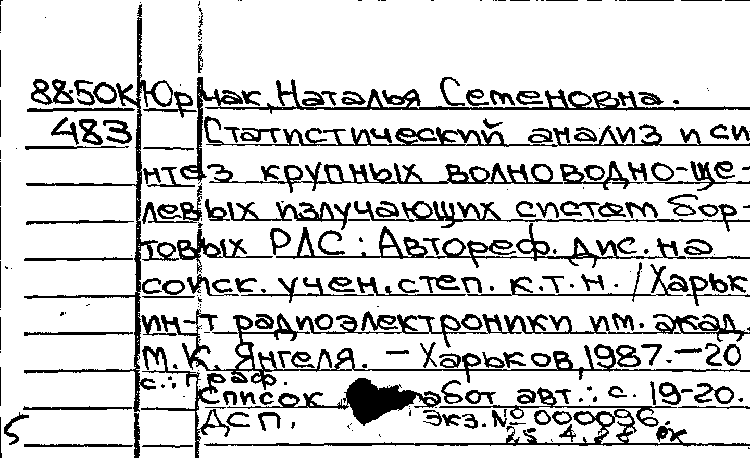 88-50К Юрчак, Наталья Семеновна.
483 Статистический анализ и си
нтез крупных волноводно-ще-
левых излучающих систем бор-
товых РЛС: Автореф. дис. на
соиск. учен. степ. к.т.н. / Харьк
ин-т радиоэлектроники им. акад.
М.К. Янгеля. - Харьков, 1987. - 20
с.: граф.
Список работ авт.: с. 19-20.
ДСП. Экз. № 000096.
25.4.88
5